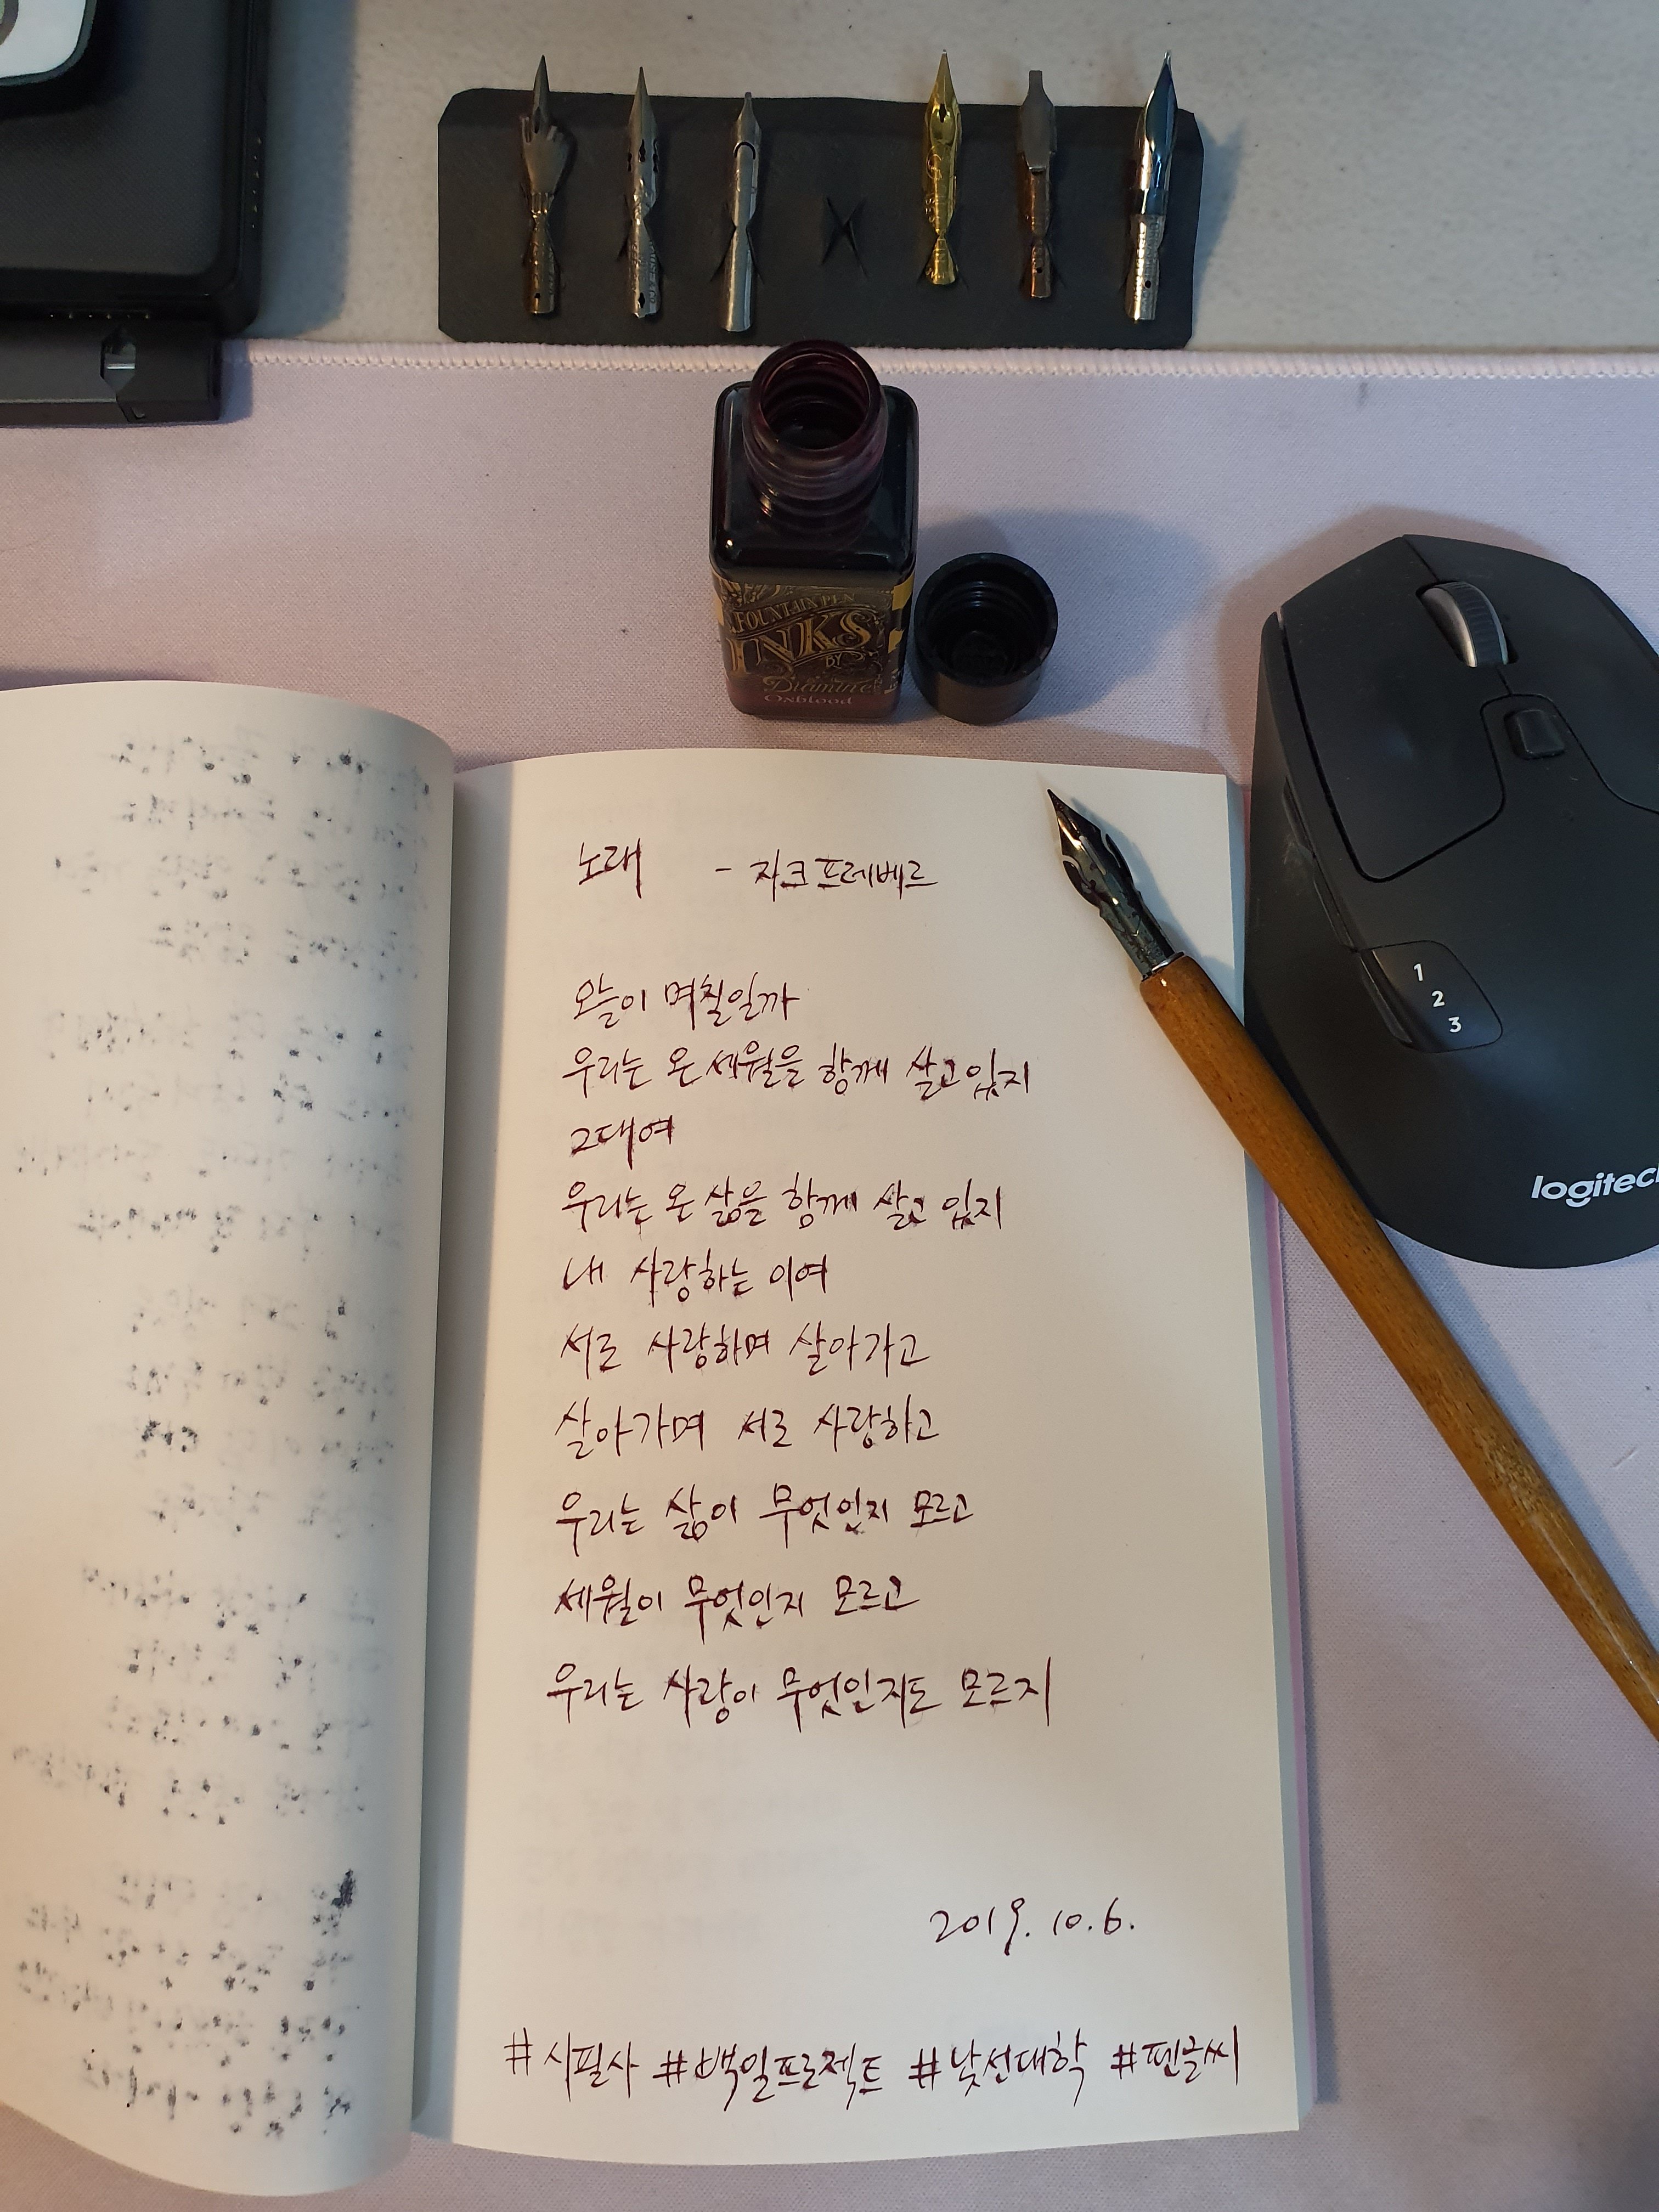 FOUNTAIN PEN
INKS
BY
Diamine
Oxblood
1
2
3
logitech
노래 - 자크 프레베르
오늘이 며칠일까
우리는 온 세월을 함께 살고 있지
그대여
우리는 온 삶을 함께 살고 있지
내 사랑하는 이여
서로 사랑하며 살아가고
살아가며 서로 사랑하고
우리는 삶이 무엇인지 모르고
세월이 무엇인지 모르고
우리는 사랑이 무엇인지도 모르지
2019. 10. 6.
#시필사 #백일프로젝트 #낯선대학 #펜글씨